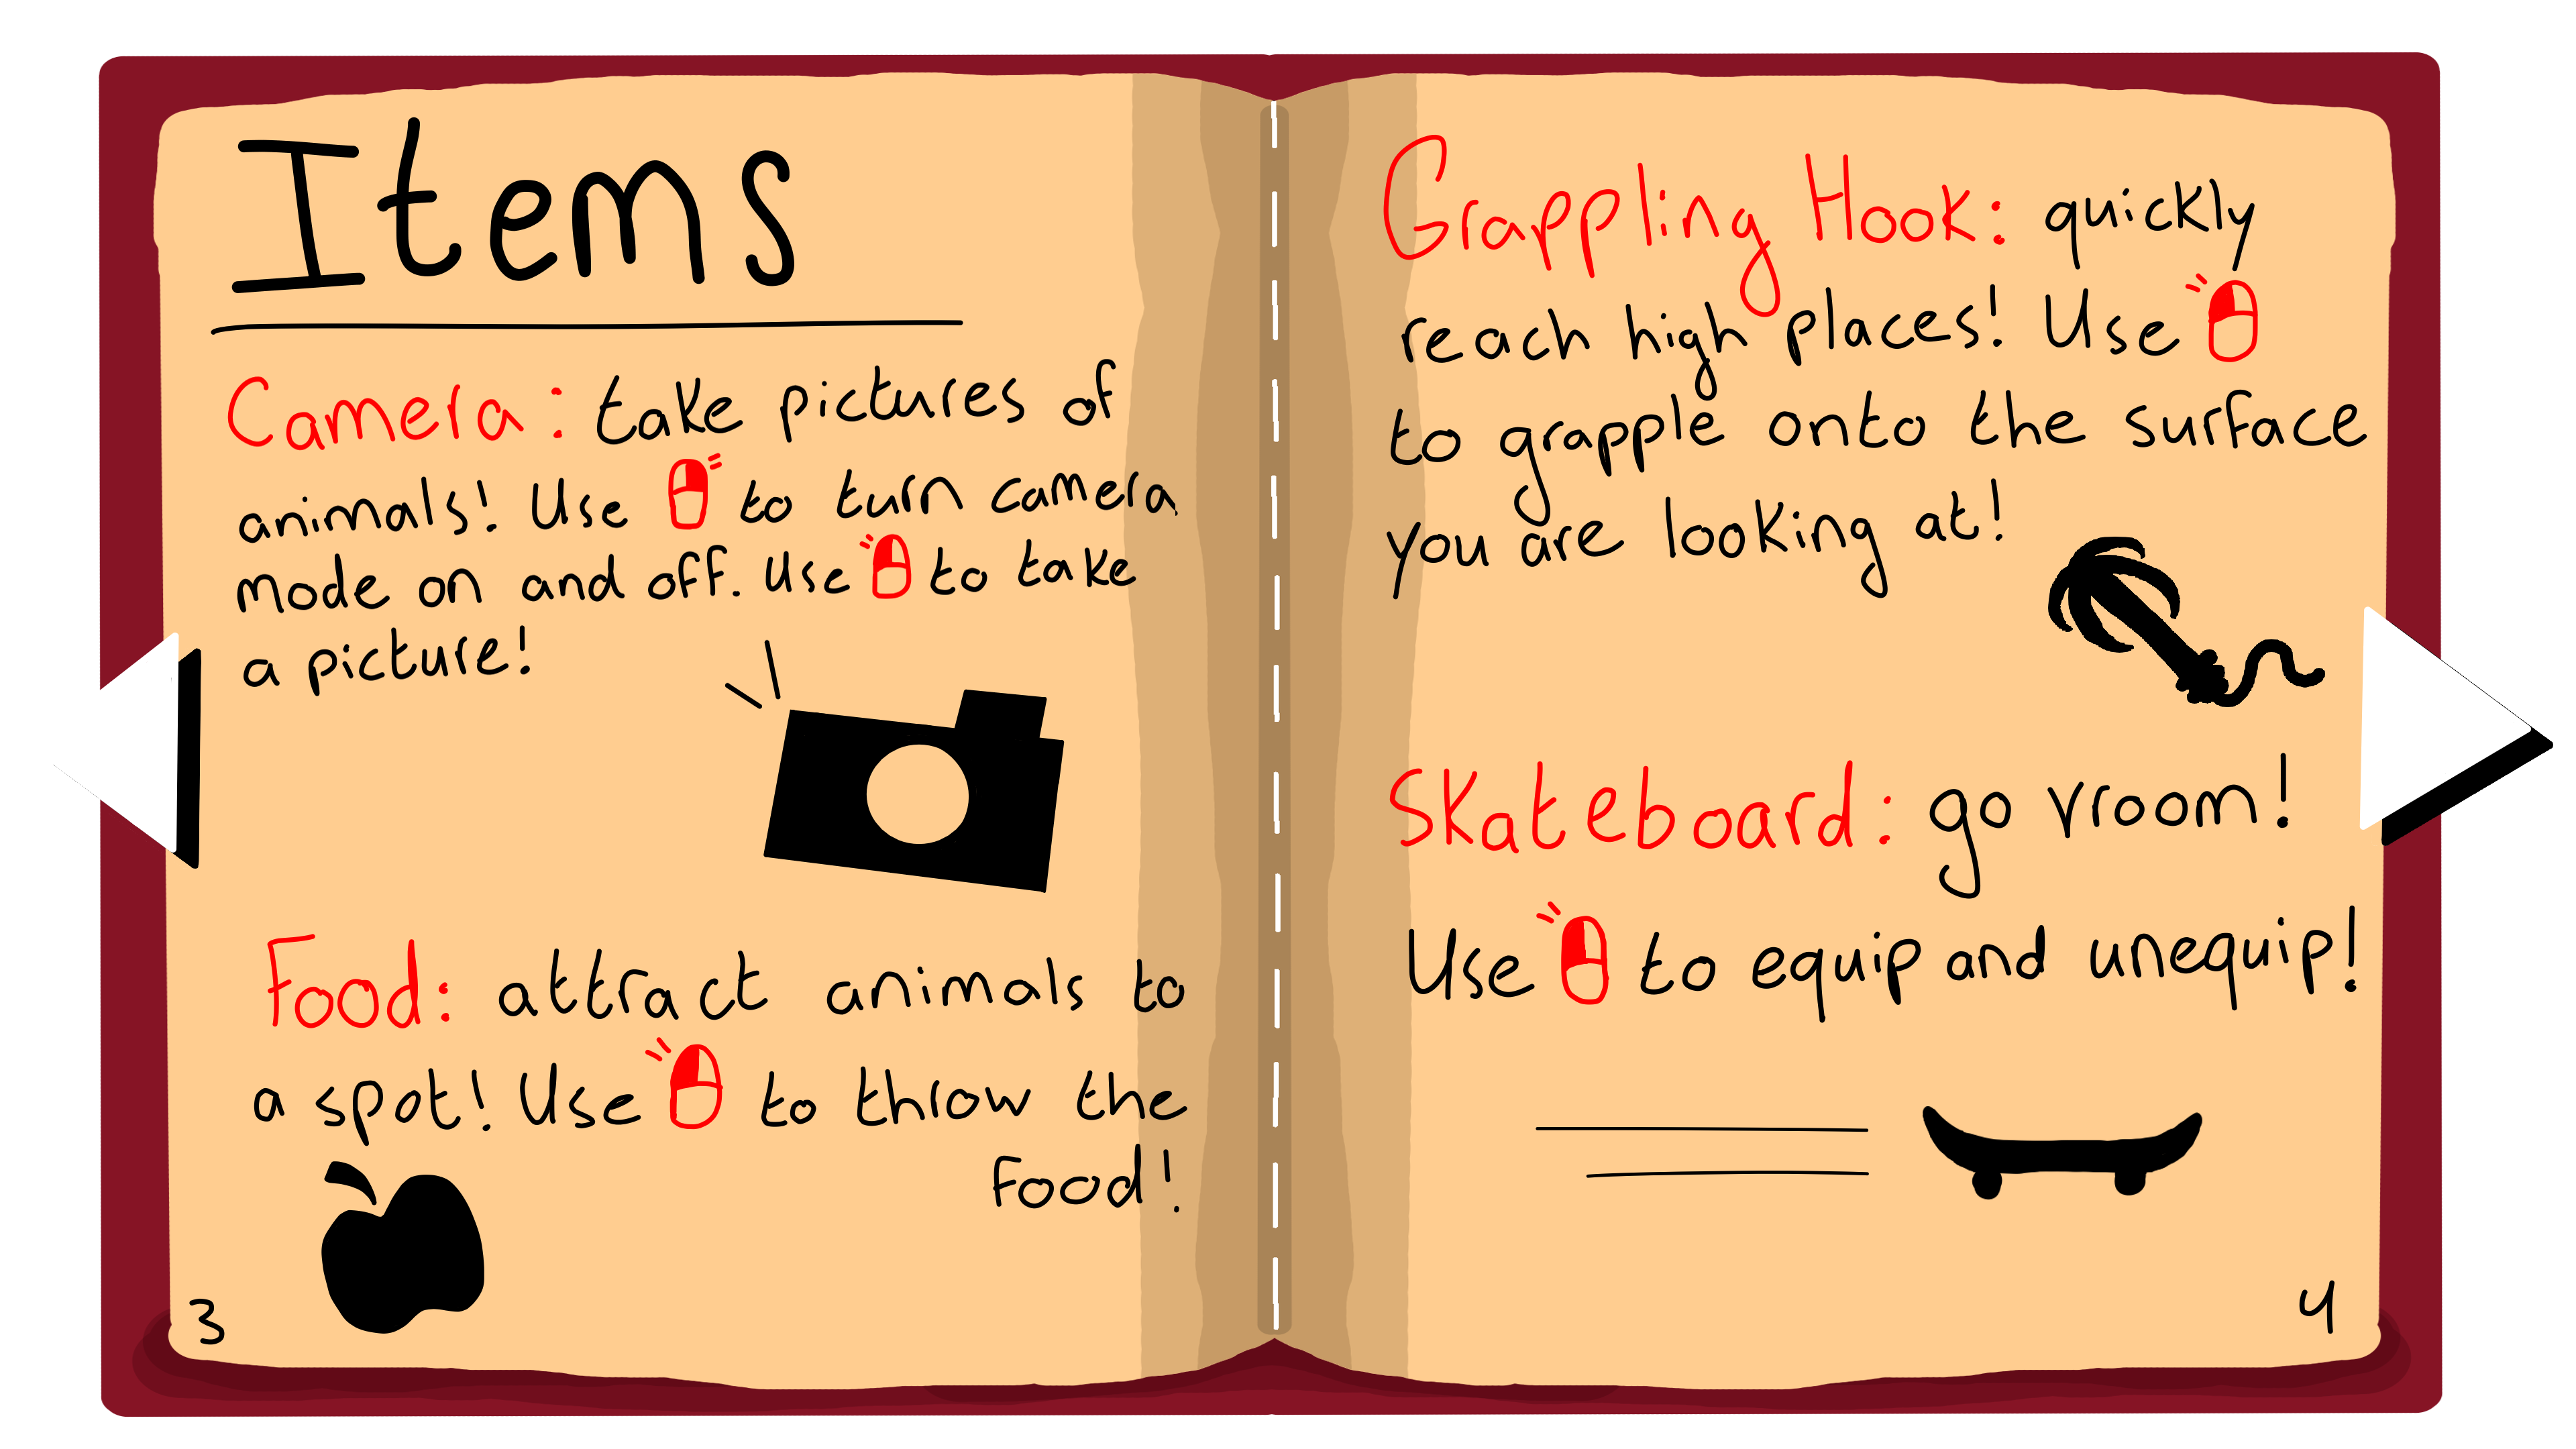 Items
Camera: take pictures of
animals! Use to turn camera
mode on and off. Use to take
a picture!
Food: attract animals to
a spot! Use to throw the
food!
3
Grappling Hook: quickly
reach high places! Use
to grapple onto the surface
you are looking at!
Skateboard: go vroom!
Use to equip and unequip!
4